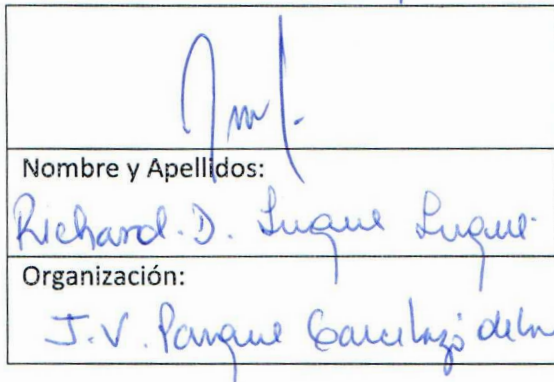 Nombre y Apellidos:
Richard. D. Luque Luque
Organización:
J.V. Parque Garcilazo de la